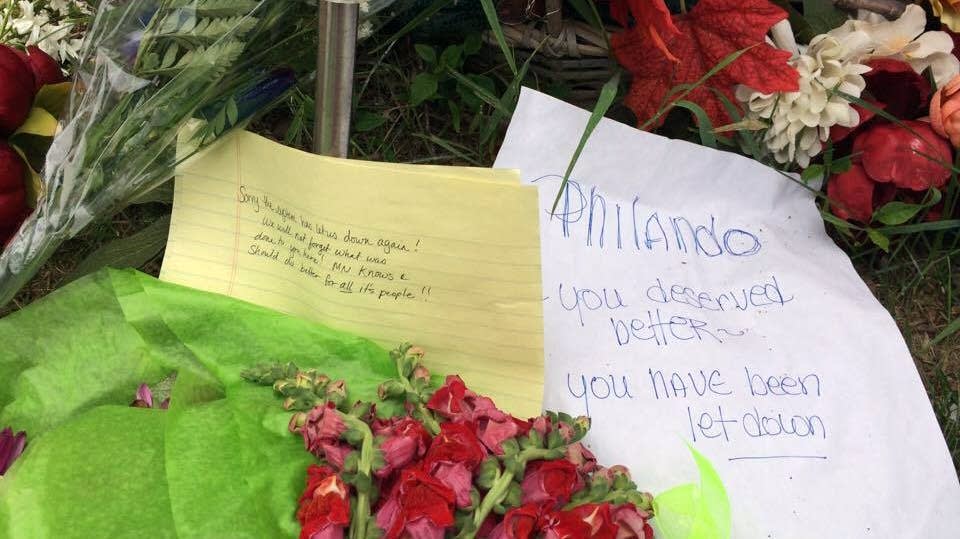 Sorry the system has let us down again!
We will not forget what was
done to you here! MN knows &
should do better for all it's people!!
Philando
you deserved
better~
you have been
let down